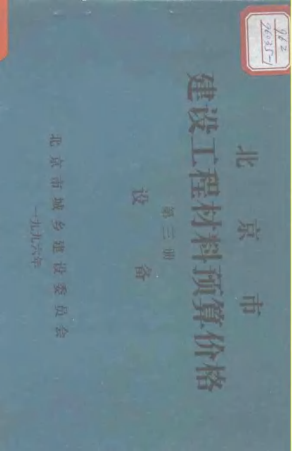 北京市
建设工程材料预算价格
第三册
设备
北京市城乡建设委员会
一九九六年